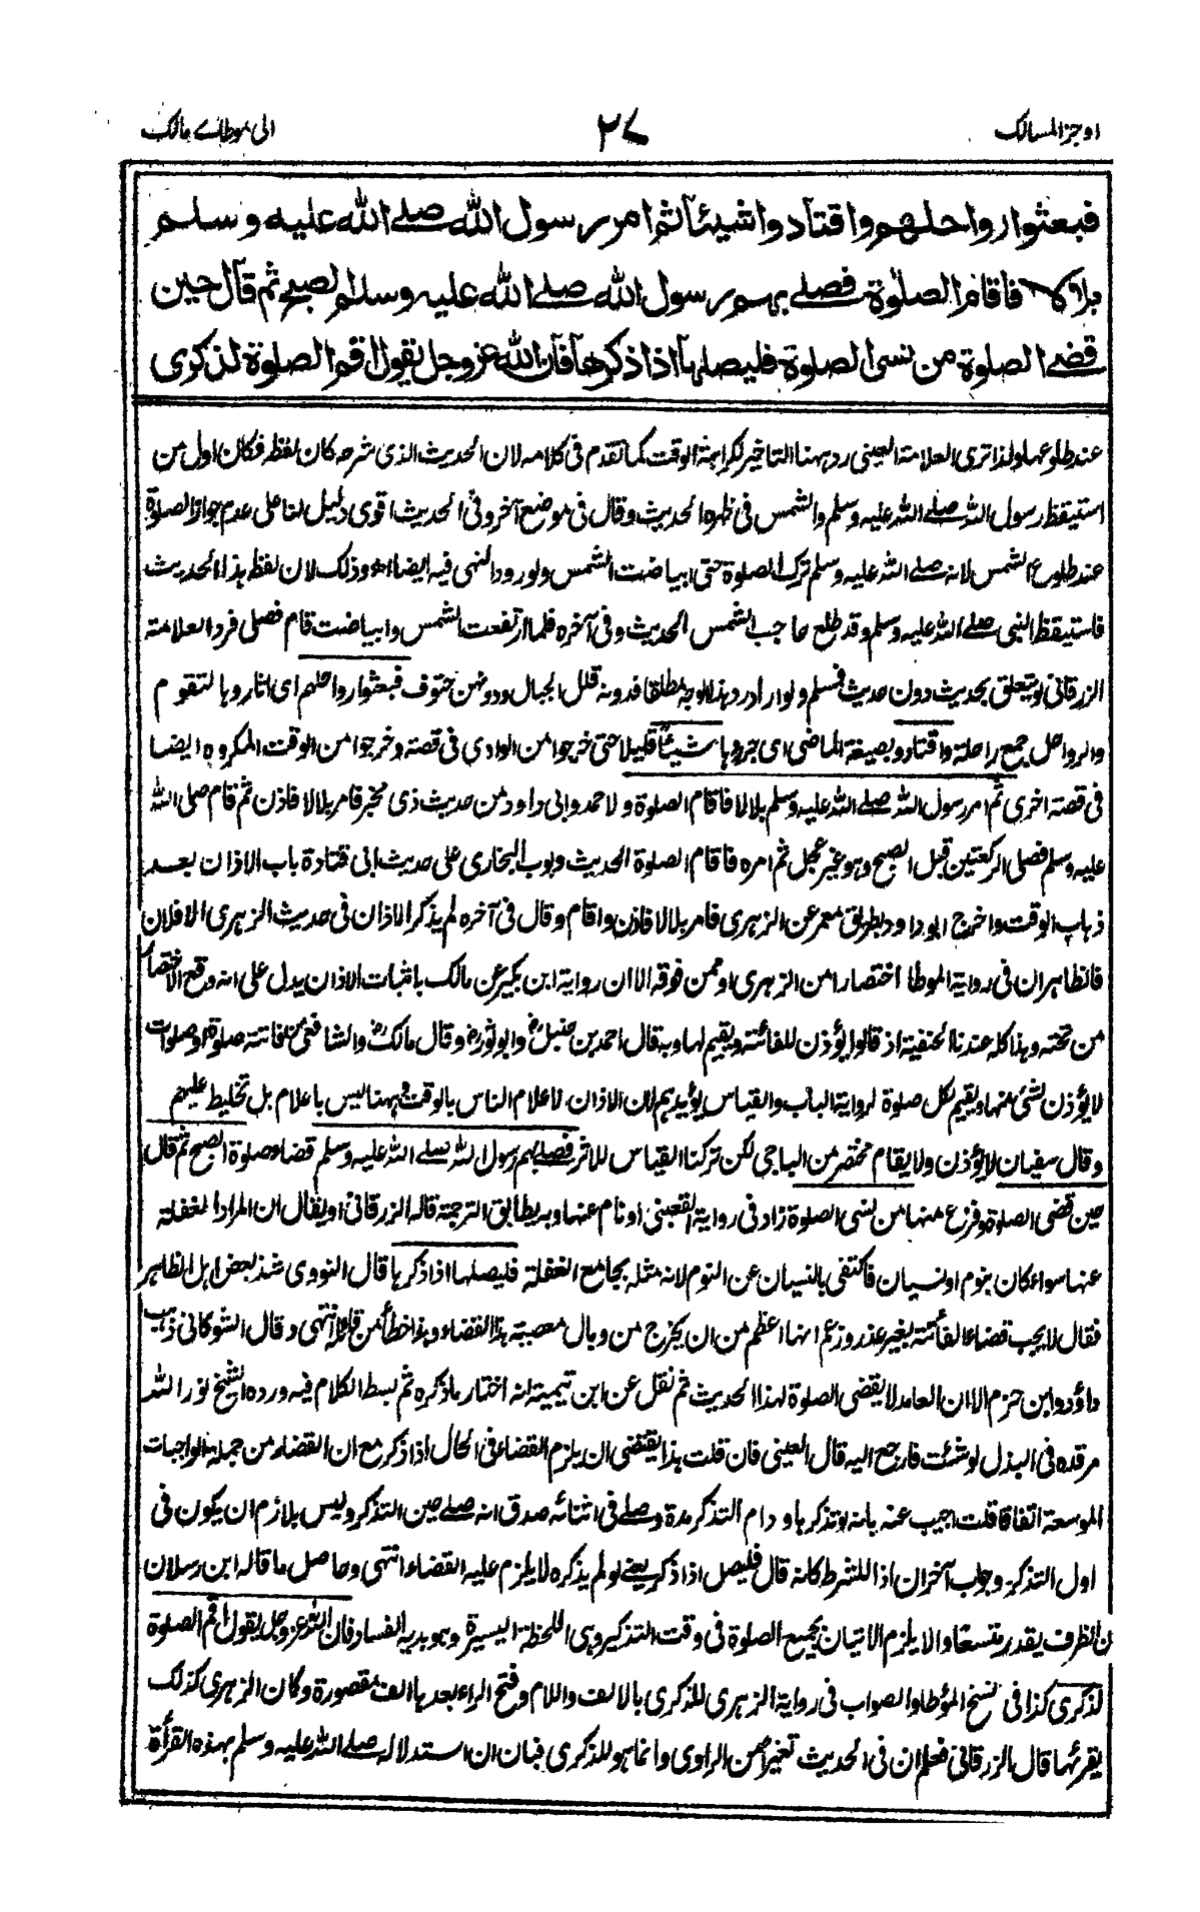 اوجز المسالك
٢٧
الى موطاے مالك
فبعثوا رواحلهم واقتادوا شيئا ثم امر رسول الله صلے الله عليه وسلم
بلالا فاقام الصلوة فصلے بهم رسول الله صلے الله عليه وسلم الصبح ثم قال حين
قضے الصلوة من نسى الصلوة فليصلها اذا ذكرها فان الله عز وجل يقول اقم الصلوة لذكرى
عند طلوعها ولذا ترى العلامة العينى رد ههنا التاخير لكراهة الوقت كما تقدم فى كلامه لان الحديث الذى شرحه كان لفظه فكان اول من
استيقظ رسول الله صلے الله عليه وسلم والشمس فى ظهره الحديث وقال فى موضع آخر وفى الحديث اقوى دليل لنا على عدم جواز الصلوة
عند طلوع الشمس لانه صلے الله عليه وسلم ترك الصلوة حتى ابياضت الشمس ولورود النهى فيه ايضا اھ وذلك لان لفظ هذا الحديث
فاستيقظ النبى صلے الله عليه وسلم وقد طلع حاجب الشمس الحديث وفى آخره فلما ارتفعت الشمس وابياضت قام فصلى فرد العلامة
الزرقانى لو يتعلق بحديث دون حديث فمسلم ولو اراد رد هذا الوجه مطلقا فدونه قلل الجبال ودونهن حتوف فبعثوا رواحلهم اى اثاروها لتقوم
والرواحل جمع راحلة واقتادوا بصيغة الماضى اى جروها شيئا قليلا حتى خرجوا من الوادى فى قصة وخرجوا من الوقت المكروه ايضا
فى قصة اخرى ثم امر رسول الله صلے الله عليه وسلم بلالا فاقام الصلوة ولاحمد وابى داود من حديث ذى مخبر فامر بلالا فاذن ثم قام صلى الله
عليه وسلم فصلى الركعتين قبل الصبح وهو غير عجل ثم امره فاقام الصلوة الحديث وبوب البخارى على حديث ابى قتادة باب الاذان بعد
ذهاب الوقت واخرج ابو داود بطريق معمر عن الزهرى فامر بلالا فاذن واقام وقال فى آخره لم يذكر الاذان فى حديث الزهرى الا فلان
فالظاهر ان فى رواية الموطا اختصارا من الزهرى او ممن فوقه الا ان رواية ابن بكير عن مالك باثبات الاذان يدل على انه وقع الاختصار
من تحته وهذا كله عندنا الحنفية اذ قالوا يؤذن للفائتة ويقيم لها وبه قال احمد بن حنبل وابو ثور وقال مالك والشافعى من فاتته صلوة او صلوات
لا يؤذن لشئ منها ويقيم لكل صلوة لرواية الباب والقياس يؤيدهم لان الاذان لاعلام الناس بالوقت وههنا ليس باعلام بل تخليط عليهم
وقال سفيان لا يؤذن ولا يقام مختصر من الباجى لكن تركنا القياس للاثر فصلے بهم رسول الله صلے الله عليه وسلم قضاء صلوة الصبح ثم قال
حين قضى الصلوة وفرغ منها من نسى الصلوة زاد فى رواية القعنبى او نام عنها وبه يطابق الترجمة قاله الزرقانى او يقال ان المراد الغفلة
عنها سواء كان بنوم او نسيان فاكتفى بالنسيان عن النوم لانه مثله بجامع الغفلة فليصلها اذا ذكرها قال النووى شذ بعض اهل الظاهر
فقال لا يجب قضاء الفائتة بغير عذر وزعم انها اعظم من ان يخرج من وبال معصية هذا القضاء وهذا خطأ من قائله انتهى وقال الشوكانى ذهب
داؤد وابن حزم الا ان العامد لا يقضى الصلوة لهذا الحديث ثم نقل عن ابن تيمية انه اختار ما ذكره ثم بسط الكلام فيه ورده الشيخ نور الله
مرقده فى البذل لو شئت فارجع اليه قال العينى فان قلت هذا يقتضى ان يلزم القضاء فى الحال اذا ذكر مع ان القضاء من جملة الواجبات
الموسعة اتفاقا قلت اجيب عنه بانه لو تذكرها ودام التذكر مدة وصلے فى اثنائه صدق انه صلے حين التذكر وليس بلازم ان يكون فى
اول التذكر وجواب آخر ان اذا للشرط كانه قال فليصل اذا ذكر يعنے لو لم يذكره لا يلزم عليه القضاء انتهى وحاصل ما قاله ابن رسلان
ان الظرف يقدر متسعا والا يلزم الاتيان بجميع الصلوة فى وقت التذكير وهى اللحظة اليسيرة وهو بديه الفساد فان الله عز وجل يقول اقم الصلوة
لذكرى كذا فى نسخ المؤطا والصواب فى رواية الزهرى للذكرى بالالف واللام وفتح الراء بعدها الف مقصورة وكان الزهرى كذلك
يقرئها قال الزرقانى فعلم ان فى الحديث تغيرا من الراوى وانما هو للذكرى فبان ان استدلاله صلے الله عليه وسلم بهذه القرأة